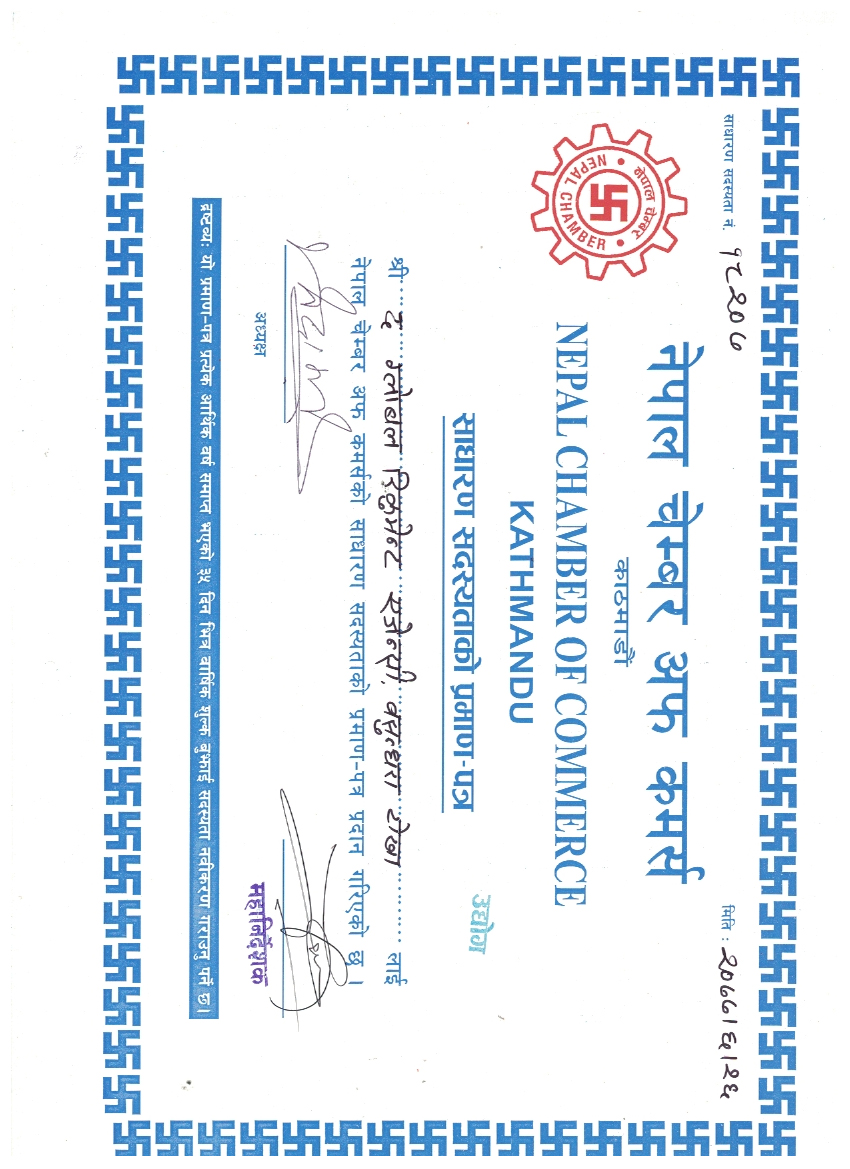 साधारण सदस्यता नं. १८२०७
मिति : २०७७।६।२६
नेपाल चेम्बर अफ कमर्स
काठमाडौं
नेपाल चेम्बर
NEPAL CHAMBER
NEPAL CHAMBER OF COMMERCE
KATHMANDU
उद्योग
साधारण सदस्यताको प्रमाण-पत्र
श्री द ग्लोबल रिक्रुमेन्ट एजेन्सी, वसुन्धरा टोखा लाई
नेपाल चेम्बर अफ कमर्सको साधारण सदस्यताको प्रमाण-पत्र प्रदान गरिएको छ ।
अध्यक्ष
महानिर्देशक
द्रष्टव्यः यो प्रमाण-पत्र प्रत्येक आर्थिक वर्ष समाप्त भएको ३५ दिन भित्र वार्षिक शुल्क बुझाई सदस्यता नवीकरण गराउनु पर्ने छ।